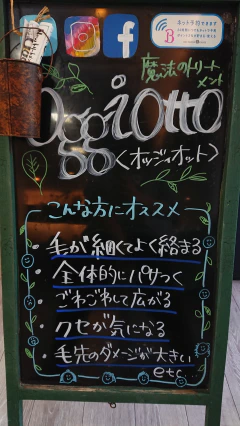 ネット予約できます
B
魔法のトリート
メント
Oggiotto
<オッジィオット>
こんな方にオススメ
・毛が細くてよく絡まる
・全体的にパサつく
・ごわごわして広がる
・クセが気になる
・毛先のダメージが大きい
etc...